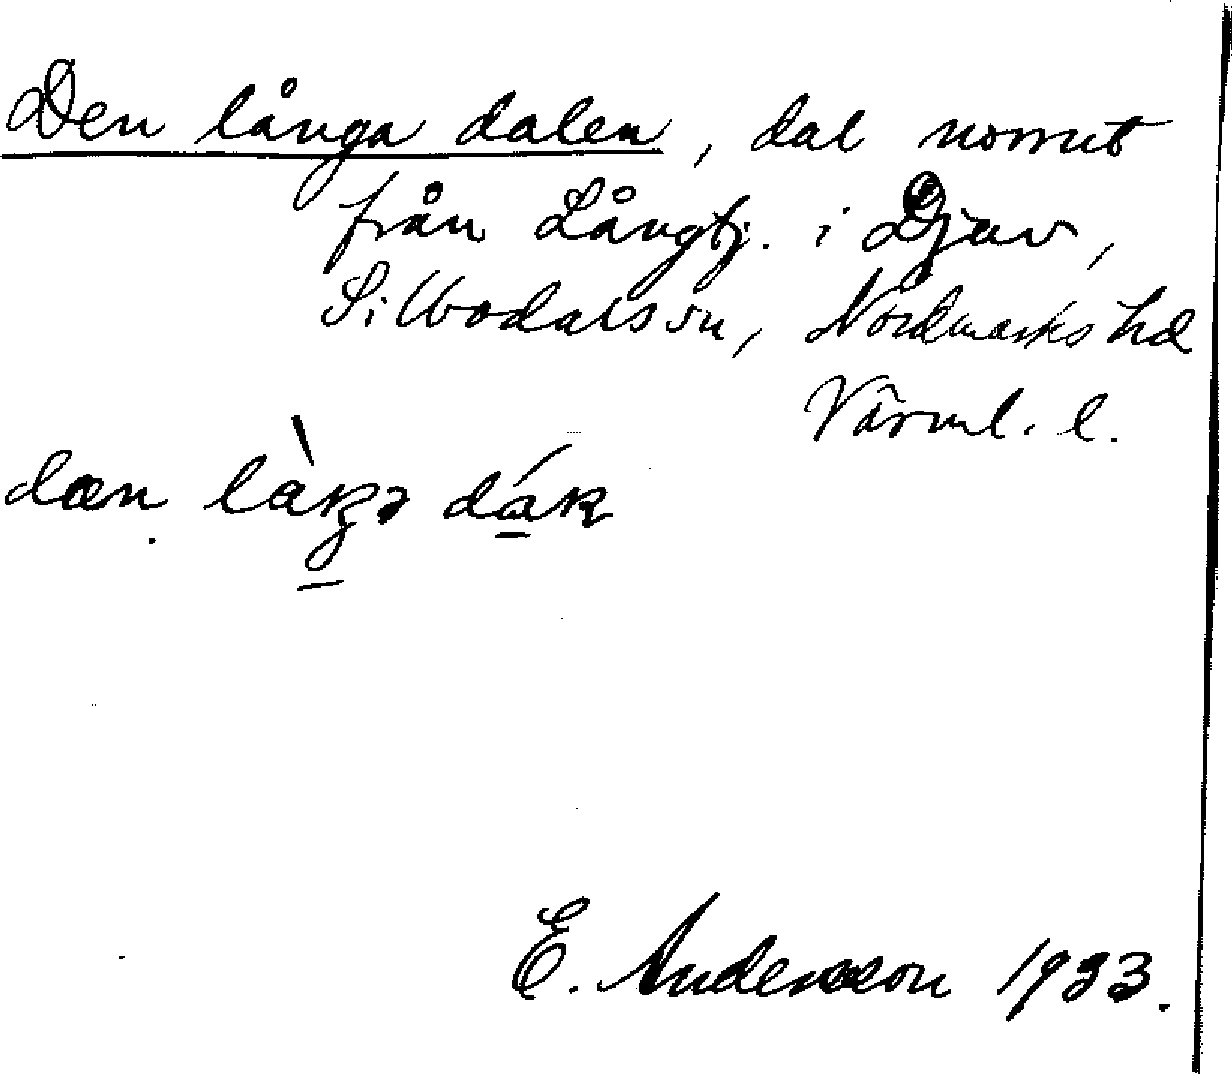 Den långa dalen, dal norrut
från Långtj. i Djuv,
Silbodals sn, Nordmarks hd
Värml. l.
E. Andersson 1933.